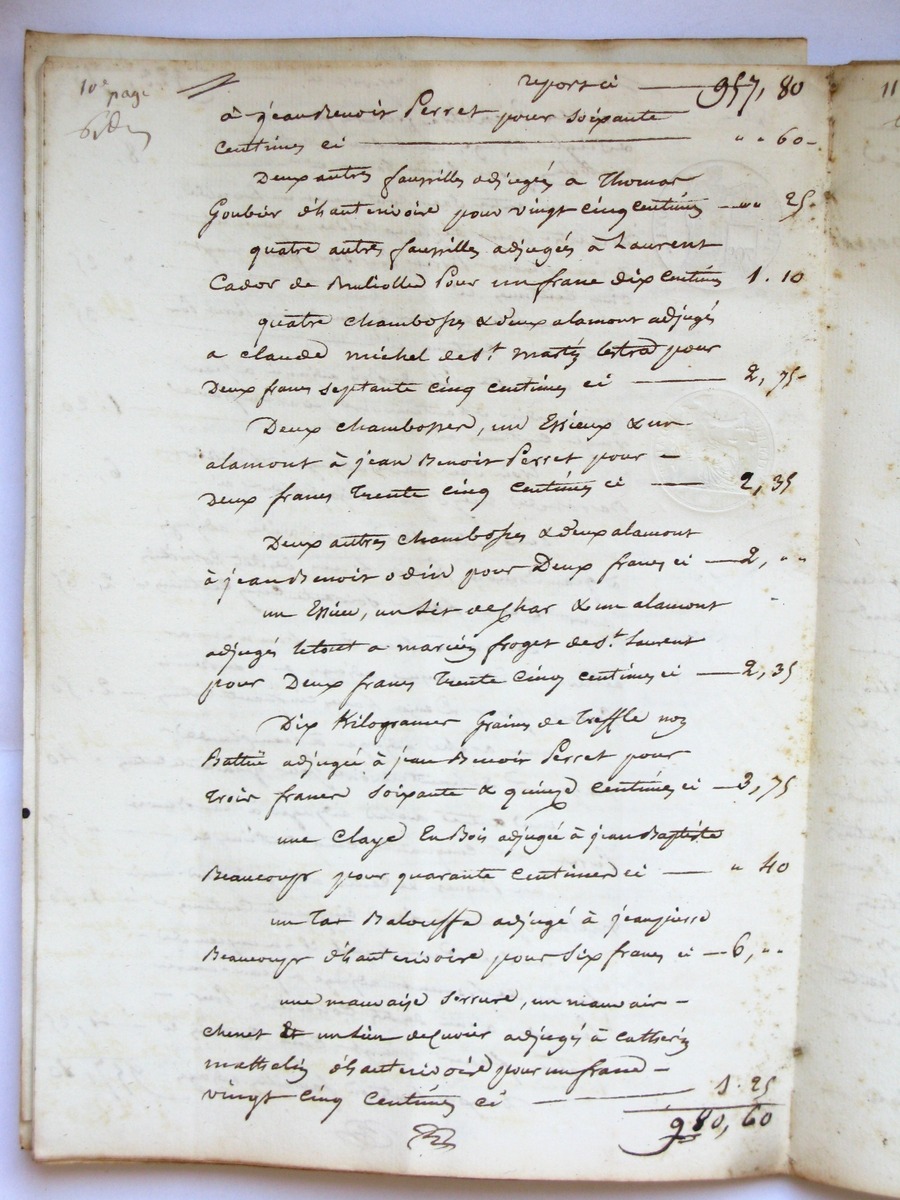 10e page
report ci — 957, 80
à jean Benoit Perret pour soixante
centimes ci — " " 60 -
Deux autres faussilles adjugés a Thomas
Goubier d'hauterivoire pour vingt cinq centimes — " " 25 -
quatre autres faussilles adjugés à Laurent
Cador de Brulliolles Pour un franc dix centimes 1 . 10
quatre chambosses & deux alamont adjugés
a claude michel de St. martin lestrad pour
Deux francs septante cinq centimes ci — 2, 75 -
Deux chambosses, un Essieux & un
alamont à jean Benoit Perret pour -
Deux francs Trente cinq centimes ci — 2, 35
Deux autres chambosses & deux alamont
à jean Benoit odin pour Deux francs ci — 2, " "
un Essieu, un Lit de Char & un alamont
adjugés le tout a marcien froget de St. Laurent
pour Deux francs Trente cinq centimes ci — 2, 35
Dix Kilogrames Graines de Treffle non
Battüe adjugée à jean Benoit Perret pour
Trois francs soixante & quinze centimes ci — 3, 75
une Claye En Bois adjugée à jean Baptiste
Beaucoup pour quarante centimes ci — " 40
un Tas Balouffe adjugé à jean pierre
Beaucoup d'hauterivoire pour six francs ci — 6, " "
une mauvaise serrure, un mauvais -
chenet Et un Lien de Cuvier adjugés à Catherin
mathelin d'hauterivoire pour un franc -
vingt cinq centimes ci — 1 . 25
980, 60
11